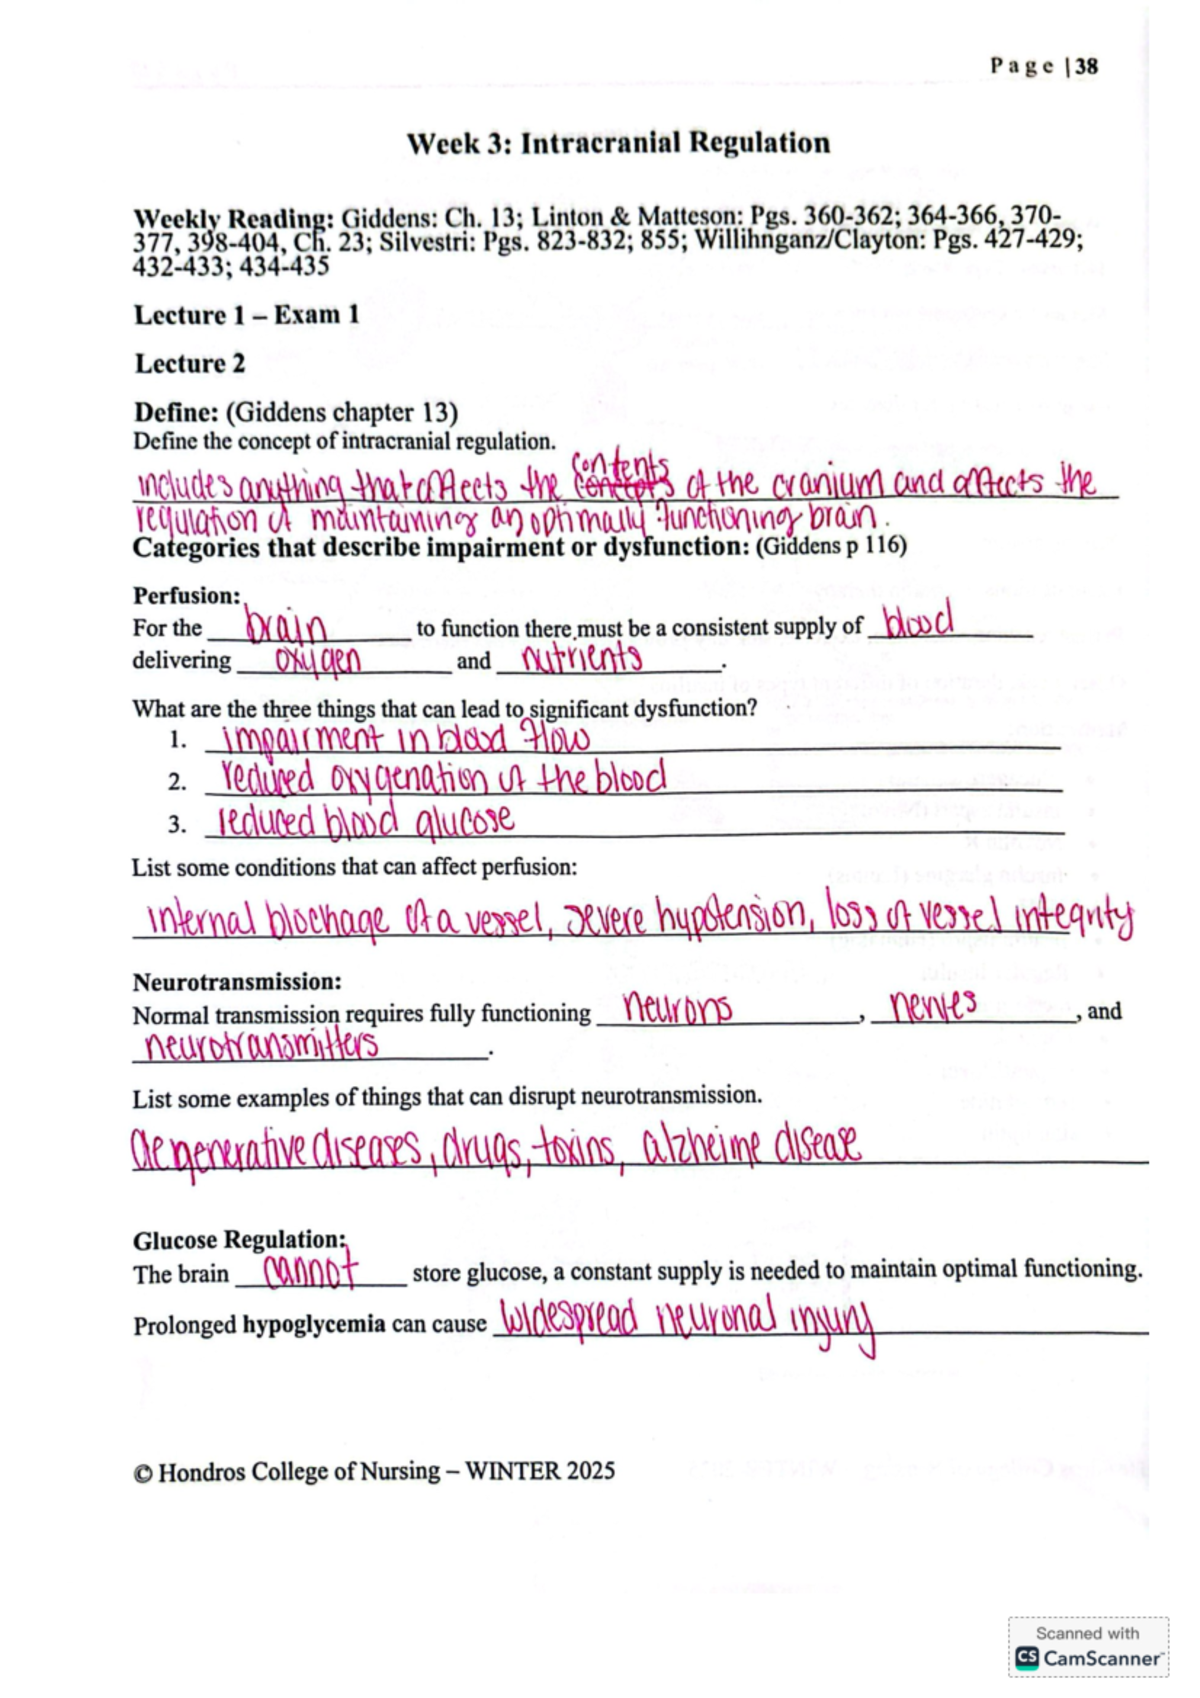 Page | 38
Week 3: Intracranial Regulation
Weekly Reading: Giddens: Ch. 13; Linton & Matteson: Pgs. 360-362; 364-366, 370-
377, 398-404, Ch. 23; Silvestri: Pgs. 823-832; 855; Willihnganz/Clayton: Pgs. 427-429;
432-433; 434-435
Lecture 1 – Exam 1
Lecture 2
Define: (Giddens chapter 13)
Define the concept of intracranial regulation.
includes anything that affects the contents of the cranium and affects the
regulation of maintaining an optimally functioning brain.
Categories that describe impairment or dysfunction: (Giddens p 116)
Perfusion:
For the brain to function there must be a consistent supply of blood
delivering oxygen and nutrients.
What are the three things that can lead to significant dysfunction?
1. impairment in blood flow
2. reduced oxygenation of the blood
3. reduced blood glucose
List some conditions that can affect perfusion:
internal blochage of a vessel, severe hypotension, loss of vessel integrity
Neurotransmission:
Normal transmission requires fully functioning neurons, nerves, and
neurotransmitters.
List some examples of things that can disrupt neurotransmission.
degenerative diseases, drugs, toxins, alzheime disease
Glucose Regulation:
The brain cannot store glucose, a constant supply is needed to maintain optimal functioning.
Prolonged hypoglycemia can cause widespread neuronal injury
© Hondros College of Nursing – WINTER 2025
Scanned with
CS CamScanner